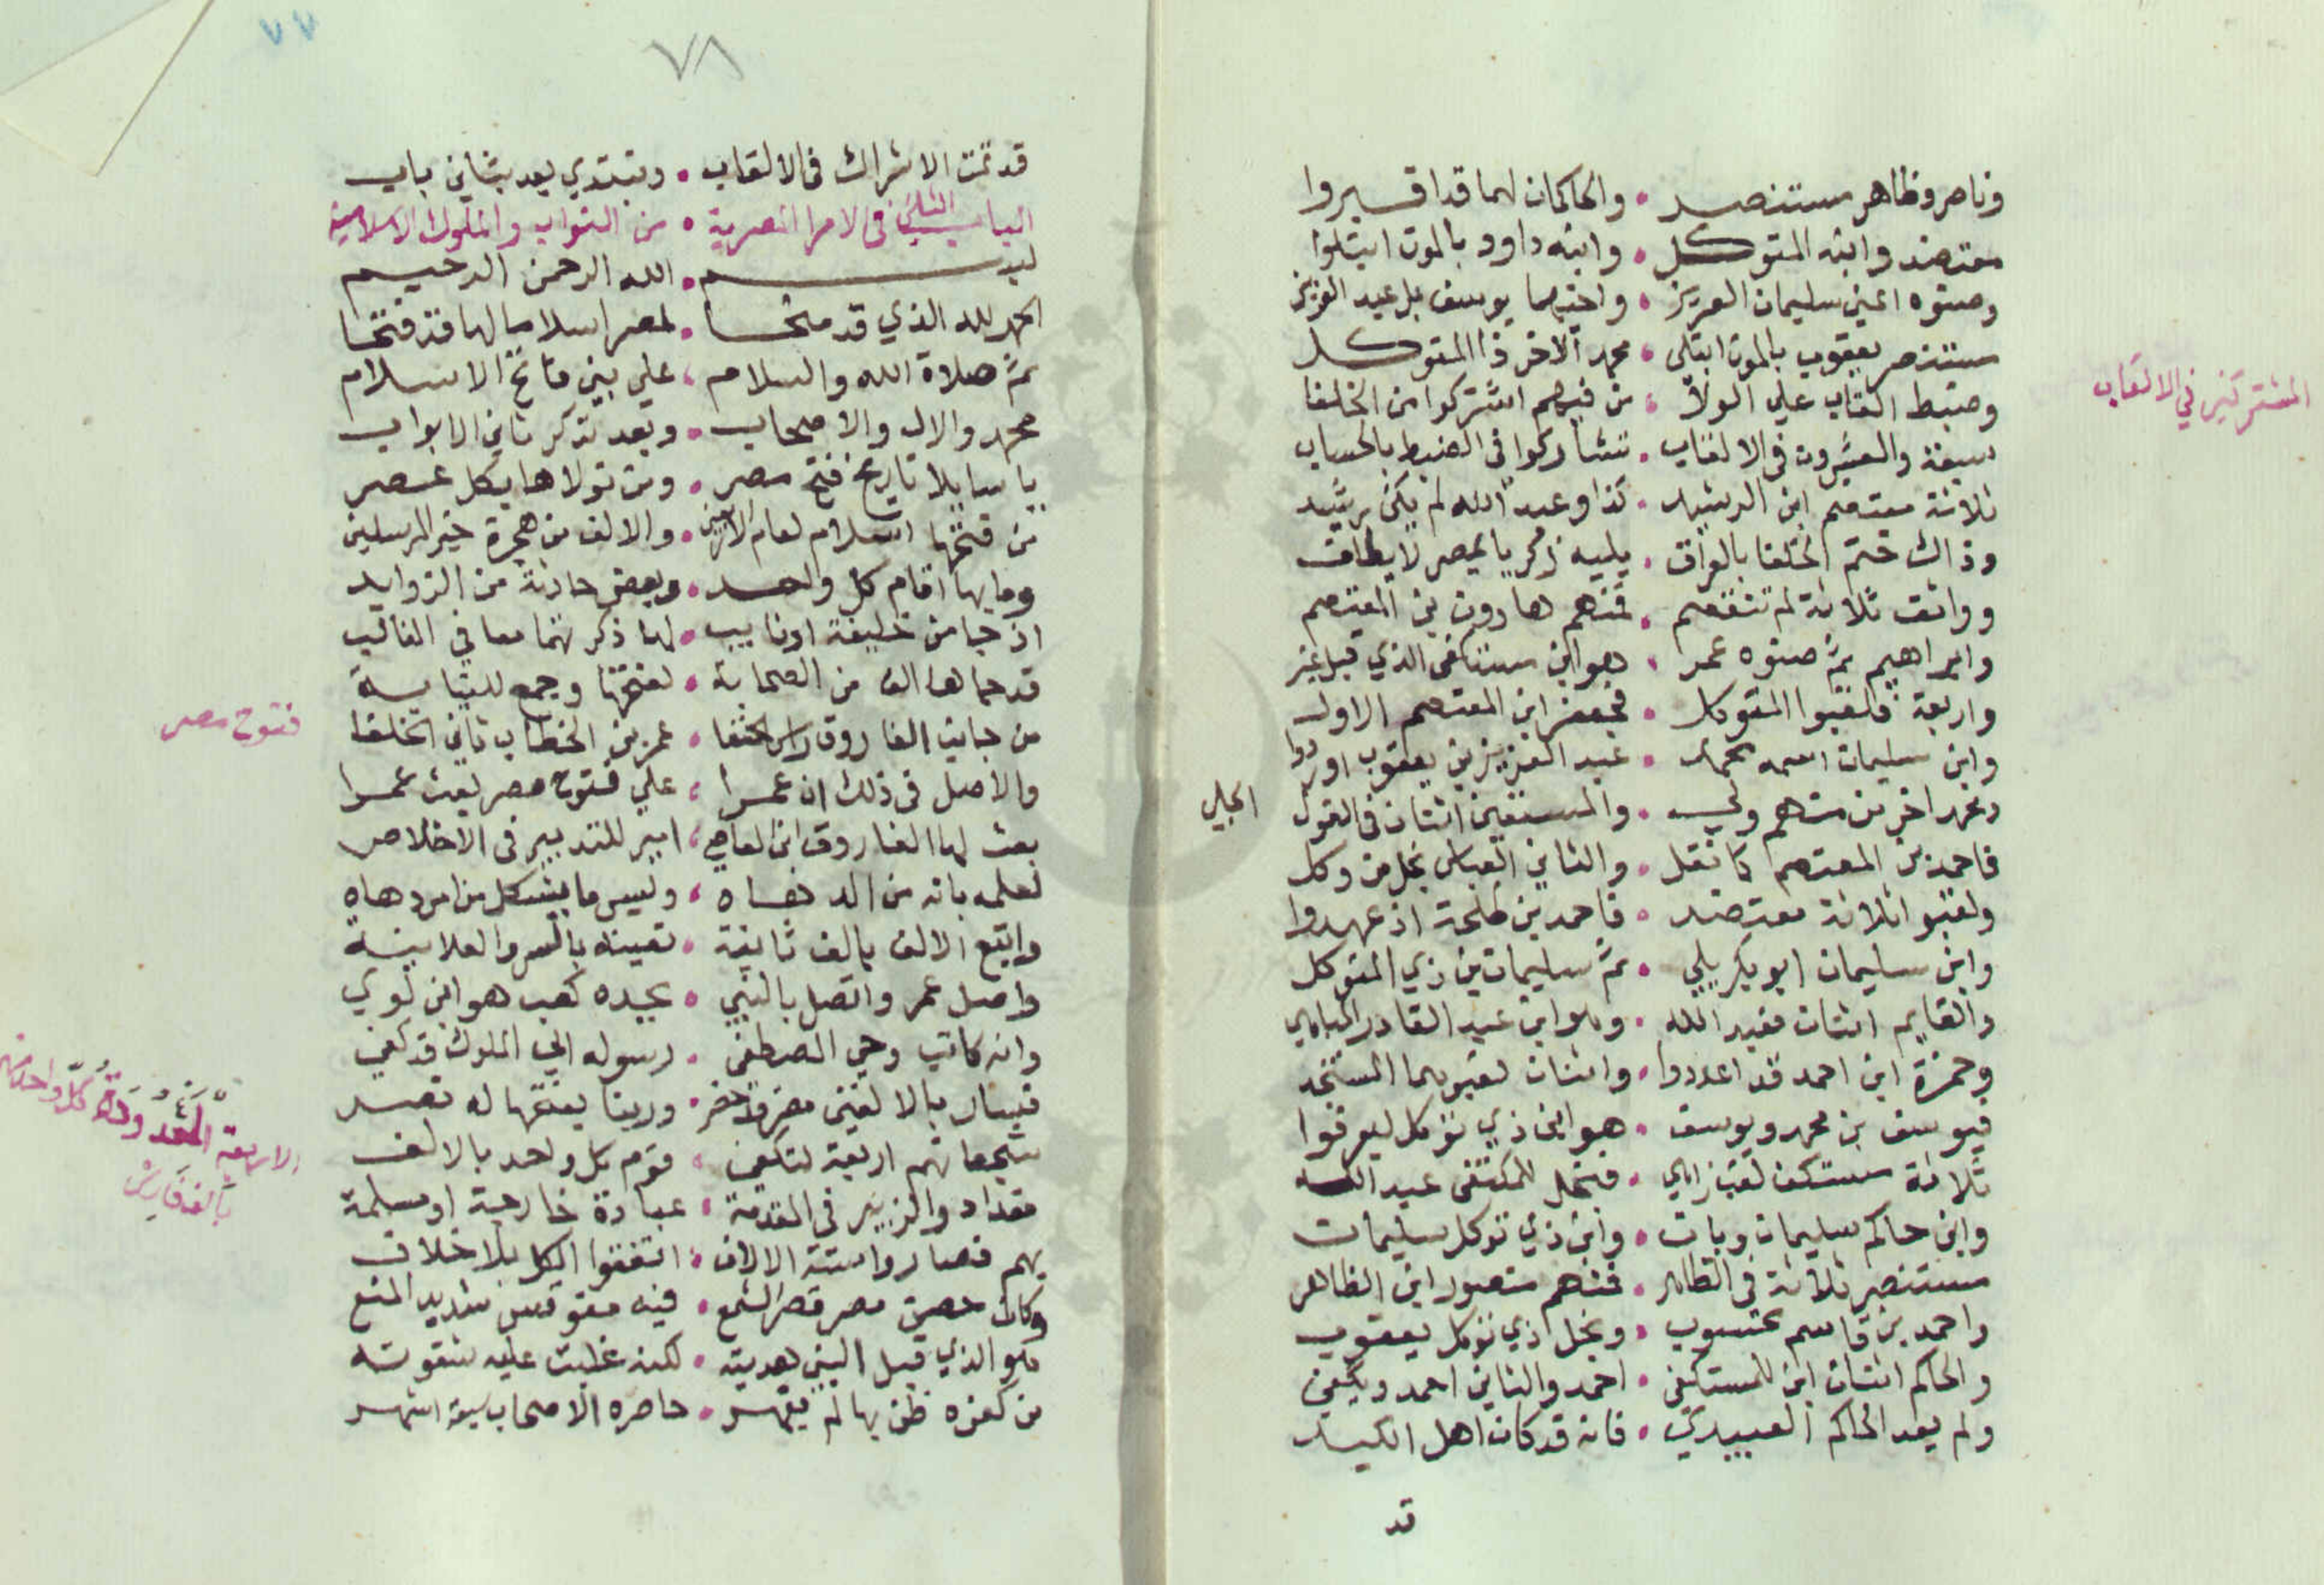 وناصر وظاهر مستنصر • والحاكمان لهما قد اقبروا
معتضد وابنه المتوكل • وابنه داود بالموت ابتلوا
وصنوه اعني سليمان العزيز • واختهما يوسف بل عبد العزيز
مستنصر يعقوب بالموت ابتلي • محمد الاخر ذا المتوكل
وضبط القاب علي الولا • من فيهم اشتركوا من الخلفا
المشتركين في الالقاب
سبعة والعشرون في الالقاب • تشاركوا في الضبط بالحساب
ثلاثة معتصم ابن الرشيد • كذا وعبد الله لم يكن برشيد
وذاك ختم الخلفا بالعراق • يليه زكريا بمصر لا يطاق
وواثق ثلاثة لم تنفصم • فمنهم هارون بن المعتصم
وابراهيم ثم صنوه عمر • هو ابن مستكفي الذي قبل غبر
واربعة فلقبوا المتوكل • فجعفر ابن المعتصم الاول
وابن سليمان اسمه محمد • عبد العزيز بن يعقوب اوردوا
محمد اخر من منهم ولي • والمستعين اثنان في القول الجلي
فاحمد بن المعتصم كما نقل • والثاني العباس نجل من وكل
ولقبوا ثلاثة معتضد • فاحمد بن طلحة اذ عهدوا
وابن سليمان ابو بكر يلي • ثم سليمان بن ذي المتوكل
والقايم اثنان فعبد الله • وهو ابن عبد القادر المباهي
وحمزة ابن احمد قد اعددوا • واثنان لقبوهما المستنجد
فيوسف بن محمد ويوسف • هو ابن ذي توكل ليعرفوا
ثلاثة مستكف لقب زاهي • فنجل المكتفى عبد الله
وابن حاكم سليمان وبان • وابن ذي توكل سليمان
مستنصر ثلاثة في الظاهر • فمنهم منصور ابن الظاهر
واحمد بن قاسم محسوب • ونجل ذي توكل يعقوب
والحاكم اثنان ابن المستكفي • احمد والثاني احمد ويكفي
ولم يعد الحاكم العبيدي • فانه قد كان اهل الكيد
قد
٧٨
٧٧
قد تمت الاشراك في الالقاب • ونبتدي بعد بثاني باب
الباب الثاني في الامرا المصرية • من النواب والملوك الاسلامية
بسم • الله الرحمن الرحيم
الحمد لله الذي قد منحا • لمصر اسلاما لها قد فتحا
ثم صلاة الله والسلام • علي نبي فاتح الاسلام
محمد والال والاصحاب • وبعد نذكر ثاني الابواب
يا سايلا تاريخ فتح مصر • ومن تولاها بكل عصر
من فتحها اسلام لعام الاربعين • والالف من هجرة خير المرسلين
وما بها اقام كل واحد • وبعض حادثة من الزوايد
اذ جا من خليفة او نايب • لها ذكرتهما معا في الغالب
قد جاها الف من الصحابة • لفتحها وجمع للنيابة
من جانب الفاروق راس الحنفا • عمر بن الخطاب ثاني الخلفا
فتوح مصر
والاصل في ذلك ان عمرا • علي فتوح مصر بعث عمرا
بعث لها الفاروق ابن العاص • امير للتدبير في الاخلاص
لعلمه بانه من الدهاه • وليس ما يشكل من امر دهاه
واتبع الالف بالف ثانية • تعينه بالسر والعلانية
واصل عمر واتصل بالنبي • بجده كعب هو ابن لوي
وانه كاتب وحي المصطفى • رسوله الي الملوك قد كفي
فسار بالالفين مصر واحضر • وربنا بفتحها له نصر
شجعانهم اربعة لتكفي • قوم كل واحد بالالف
الاربعة المعدودة كل واحد منهم
بالف فارس
مقداد والزبير في المقدمة • عبادة خارجة او مسلمة
بهم فصاروا ستة الالاف • اتفقوا الكل بلا خلاف
وكان حصن مصر قصر الشمع • فيه مقوقس شديد المنع
هو الذي قبل النبي هديته • لكنه غلبت عليه شقوته
من كفره ظن بها لم يقهر • حاصره الاصحاب سبعة اشهر